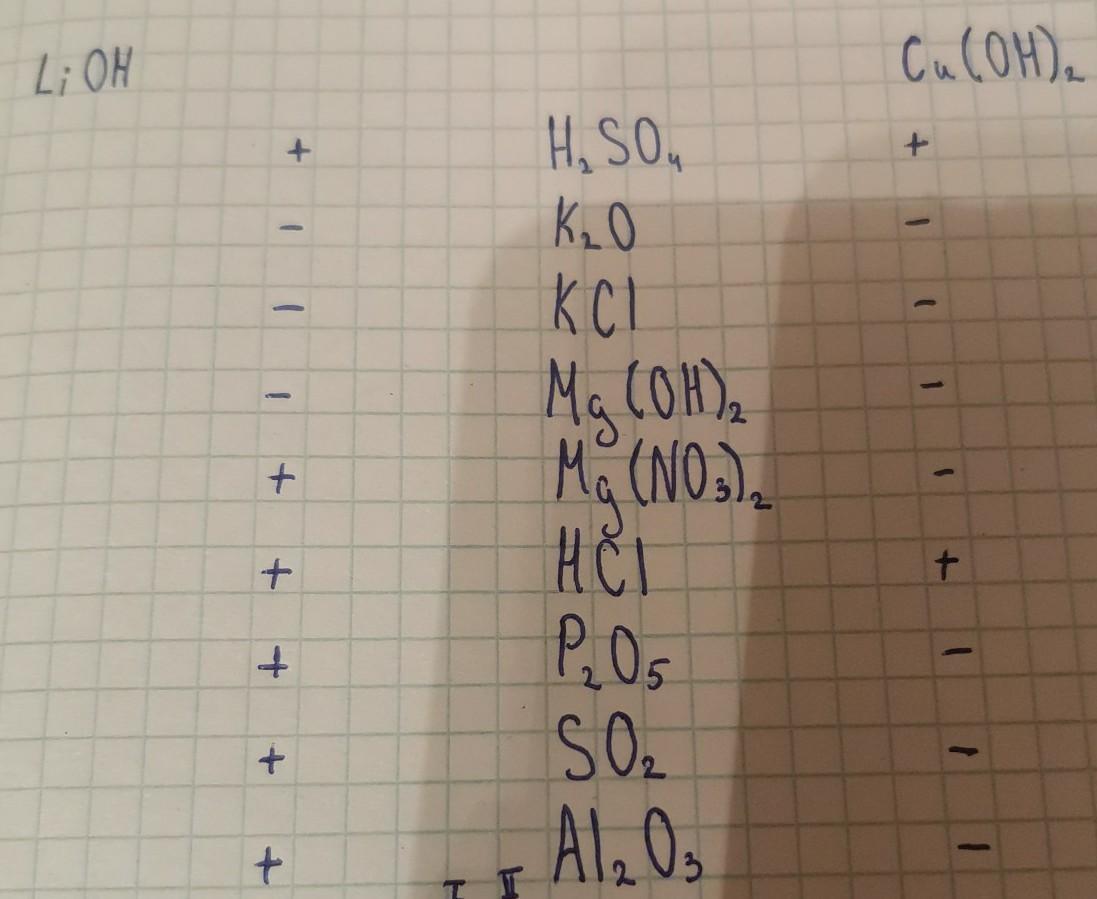 LiOH Cu(OH)₂
+ H₂SO₄ +
- K₂O -
- KCl -
- Mg(OH)₂ -
+ Mg(NO₃)₂ -
+ HCl +
+ P₂O₅ -
+ SO₂ -
+ Al₂O₃ -
I II